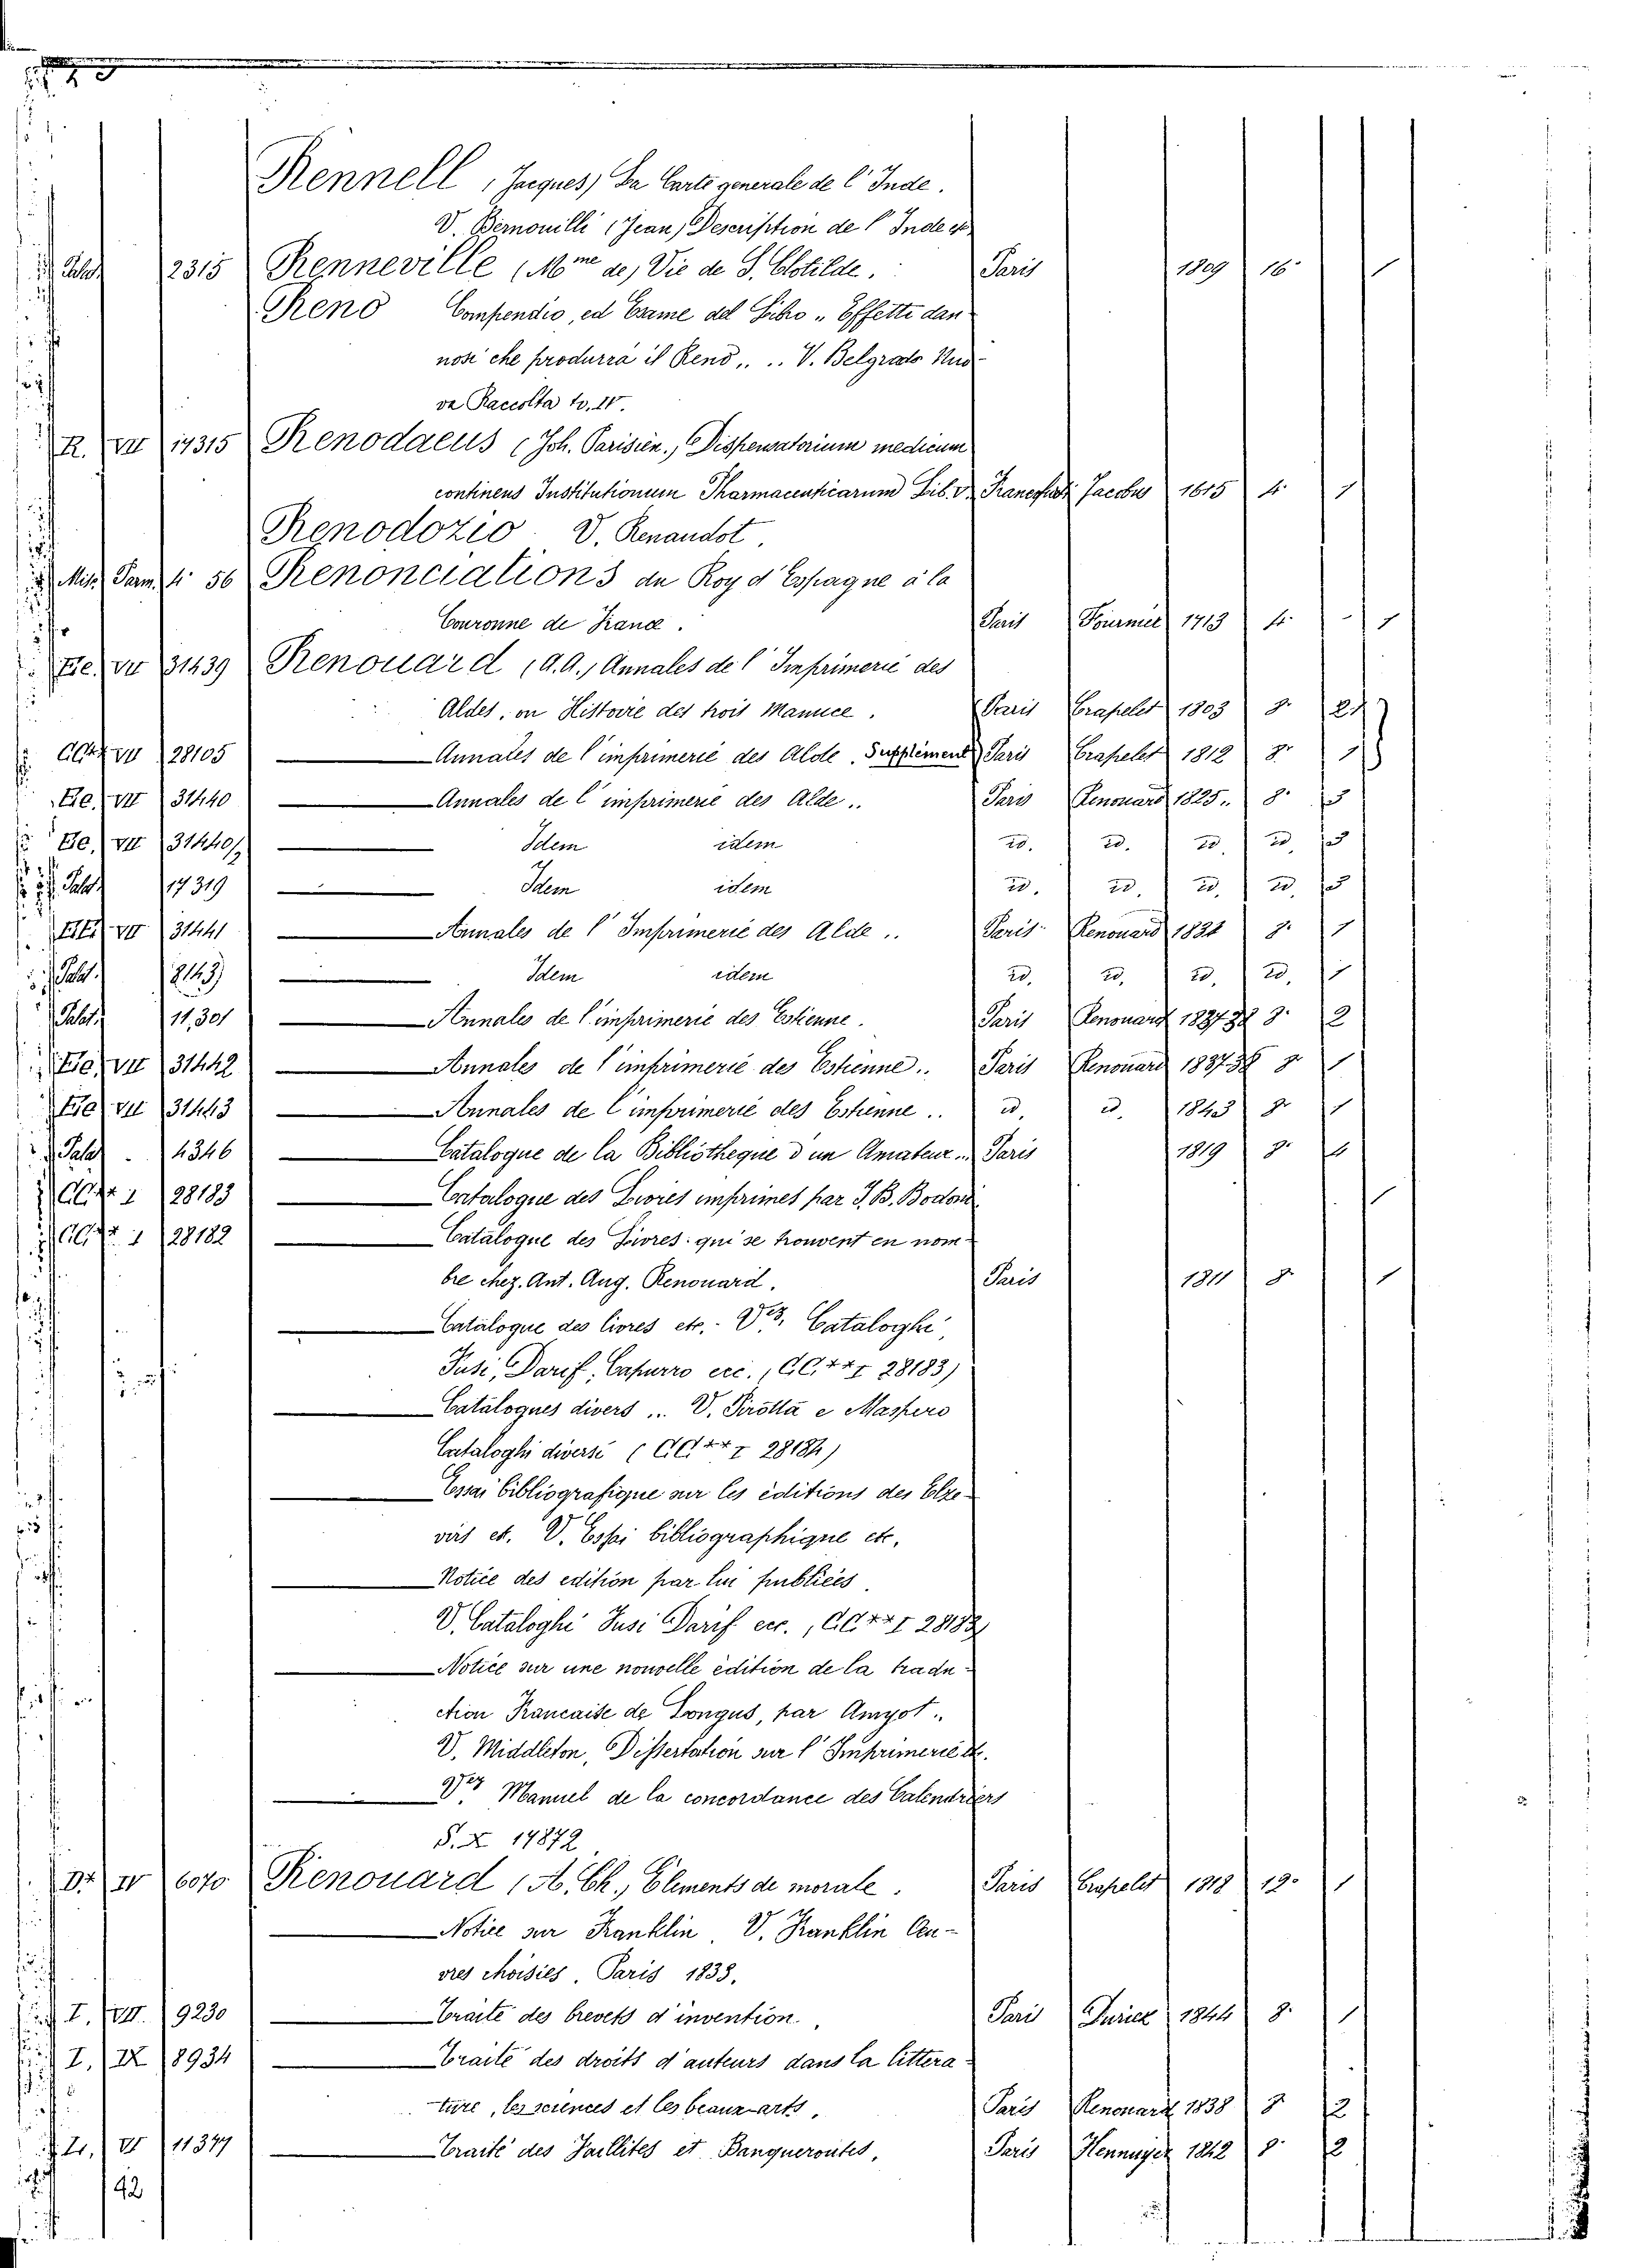 Rennell (Jacques) La Carte generale de l'Inde.
V. Bernouilli (Jean) Description de l'Inde
Palat. 12315 Renneville (Mme de) Vie de S. Clotilde. Paris 1809 16° 1
Reno Compendio, ed Esame del Libro „ Effetti dan-
nosi che produrrà il Reno „ .. V. Belgrado Nuo-
va Raccolta to. IV.
R. VII 17315 Renodaeus (Joh. Parisien.) Dispensatorium medicum
continens Institutionum Pharmaceuticarum Lib. V. Francofurti Jacobus 1615 4° 1
Renodozio V. Renaudot.
Misc. Parm. 4° 56 Renonciations du Roy d'Espagne à la
Couronne de France. Paris Fournier 1713 4° 1
VII 31439 Renouard (A.A.) Annales de l'Imprimerie des
Aldes, ou Histoire des trois Manuce. Paris Crapelet 1803 8°
28105 — Annales de l'imprimerie des Alde. Supplément Paris Crapelet 1812 8° 1
VII 31440 — Annales de l'imprimerie des Alde.. Paris Renouard 1825. 8° 3
VII 31440/2 — Idem idem id. id. id. id. 3
Palat. 17319 — Idem idem id. id. id. id. 3
VII 31441 — Annales de l'Imprimerie des Alde.. Paris Renouard 1834 8° 1
Palat. 12143 — Idem idem id. id. id. id. 1
Palat. 11,301 — Annales de l'imprimerie des Estienne. Paris Renouard 1837 38 8° 2
VII 31442 — Annales de l'imprimerie des Estienne.. Paris Renouard 1837 38 8° 1
VII 31443 — Annales de l'imprimerie des Estienne.. id. id. 1843 8° 1
Palat. 4346 — Catalogue de la Bibliotheque d'un Amateur.. Paris 1819 8° 4
CC** I 28183 — Catalogue des Livres imprimes par J.B. Bodoni 1
CC** I 28182 — Catalogue des Livres qui se trouvent en nom-
bre chez. Ant. Aug. Renouard. Paris 1811 8° 1
— Catalogue des livres etc. - Cataloghi
Fusi, Darif, Capurro ecc. (CC** I 28183)
— Catalogues divers .. V. Pirotta e Maspero
Cataloghi diversi (CC** I 28184)
— Essai bibliografique sur les éditions des Elze-
virs et. V. Essai bibliographique etc.
— Notice des edition par lui publiées.
V. Cataloghi Fusi Darif ecc. (CC** I 28183)
— Notice sur une nouvelle édition de la tradu-
ction Francaise de Longus, par Amyot..
V. Middleton, Dissertation sur l'Imprimerie et.
— Manuel de la concordance des Calendriers
S. X 14872
IV 6070 Renouard (A. Ch.) Elements de morale. Paris Crapelet 1818 12° 1
— Notice sur Franklin. V. Franklin Oeu-
vres choisies. Paris 1838.
I. VII. 9230 — Traité des brevets d'invention. Paris 1844 8° 1
I. IX 8934 — Traité des droits d'auteurs dans la littera-
ture, les sciences et les beaux-arts. Paris Renouard 1838 8° 2
VI 11377 — Traité des Faillites et Banqueroutes, Paris Hennuyer 1842 8° 2
42